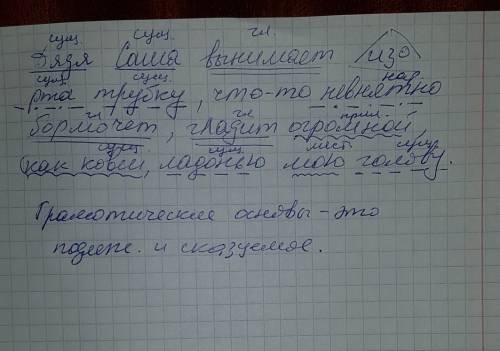 сущ. сущ. гл
Дядя Саша вынимает изо
сущ. сущ. нар
рта трубку, что-то невнятно
гл гл прил.
бормочет, гладит огромной,
сущ. сущ мест сущ.
как ковш, ладонью мою голову.
Грамотические основы - это
подлеж. и сказуемое.